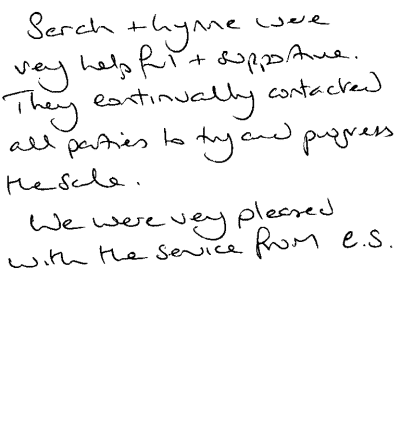 Sarah + Lynne were
very helpful + supportive.
They continually contacted
all parties to try and progress
the sale.
We were very pleased
with the service from e.s.